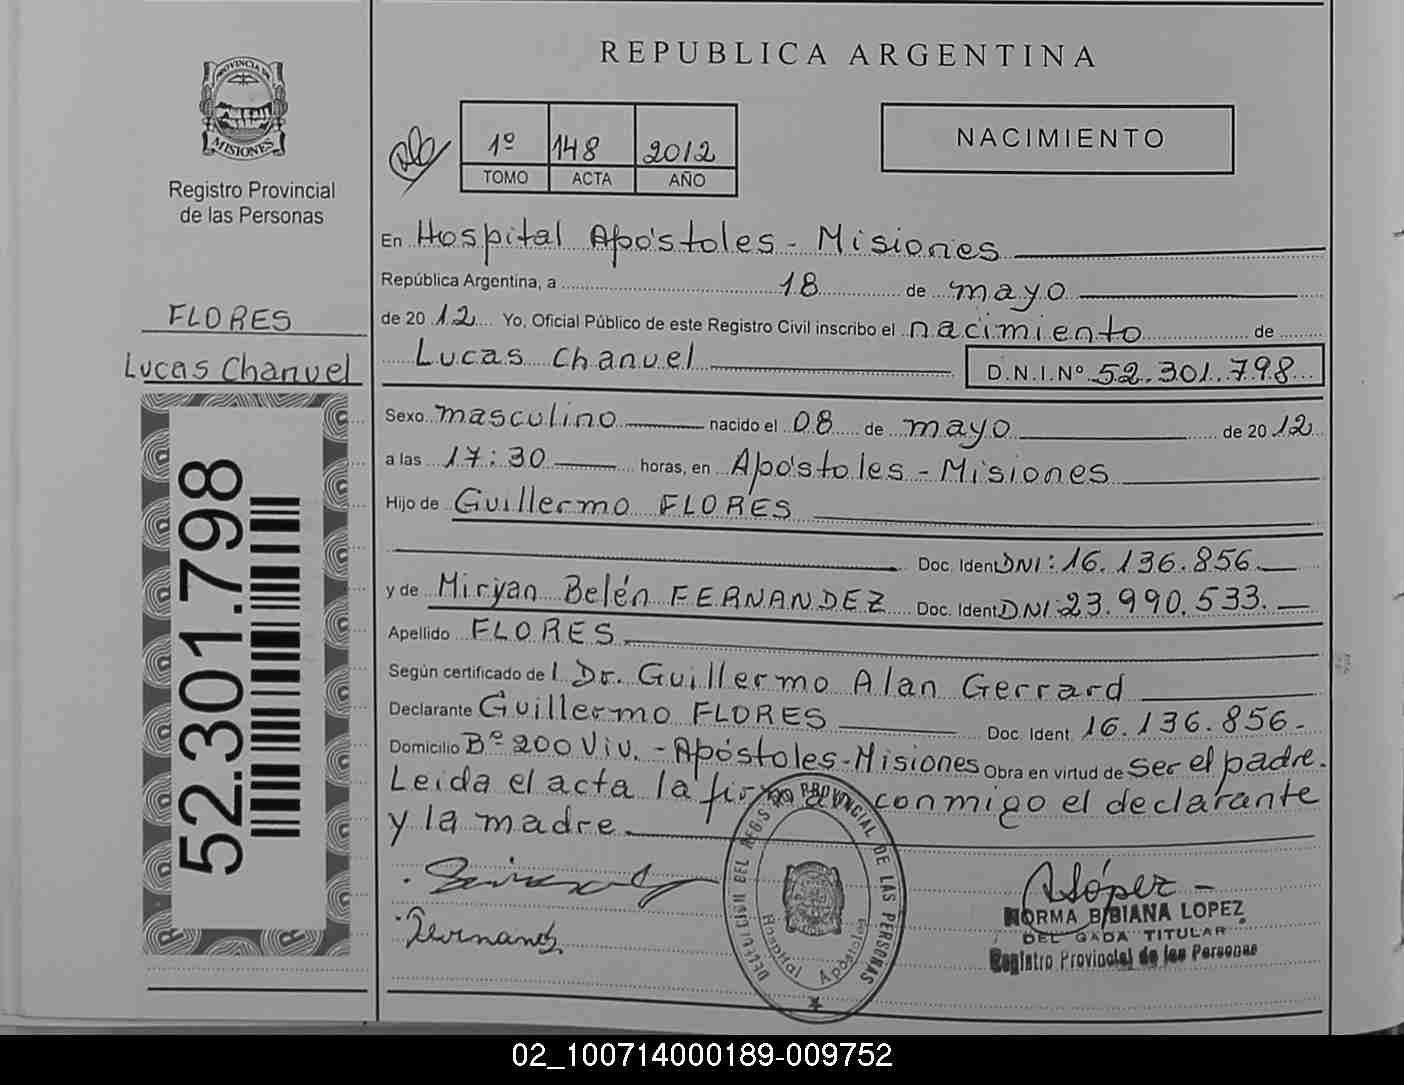 PROVINCIA DE
MISIONES
Registro Provincial
de las Personas
FLORES
Lucas Chanuel
52.301.798
REPUBLICA ARGENTINA
1º 148 2012
TOMO ACTA AÑO
NACIMIENTO
En Hospital Apóstoles - Misiones
República Argentina, a 18 de mayo
de 20 12 Yo, Oficial Público de este Registro Civil inscribo el nacimiento de
Lucas Chanuel D.N.I.Nº 52.301.798
Sexo masculino nacido el 08 de mayo de 20 12
a las 17:30 horas, en Apóstoles - Misiones
Hijo de Guillermo FLORES
Doc. Ident DNI: 16.136.856.
y de Miryan Belén FERNANDEZ Doc. Ident DNI 23.990.533.
Apellido FLORES
Según certificado de l Dr. Guillermo Alan Gerrard
Declarante Guillermo FLORES Doc. Ident. 16.136.856-
Domicilio Bº 200 Viv. - Apóstoles-Misiones Obra en virtud de ser el padre.
Leída el acta la conmigo el declarante
y la madre
DEL REGISTRO PROVINCIAL DE LAS PERSONAS
Hospital Apóstoles
Fernandez
López
NORMA BIBIANA LOPEZ
DELEGADA TITULAR
Registro Provincial de las Personas
02_100714000189-009752